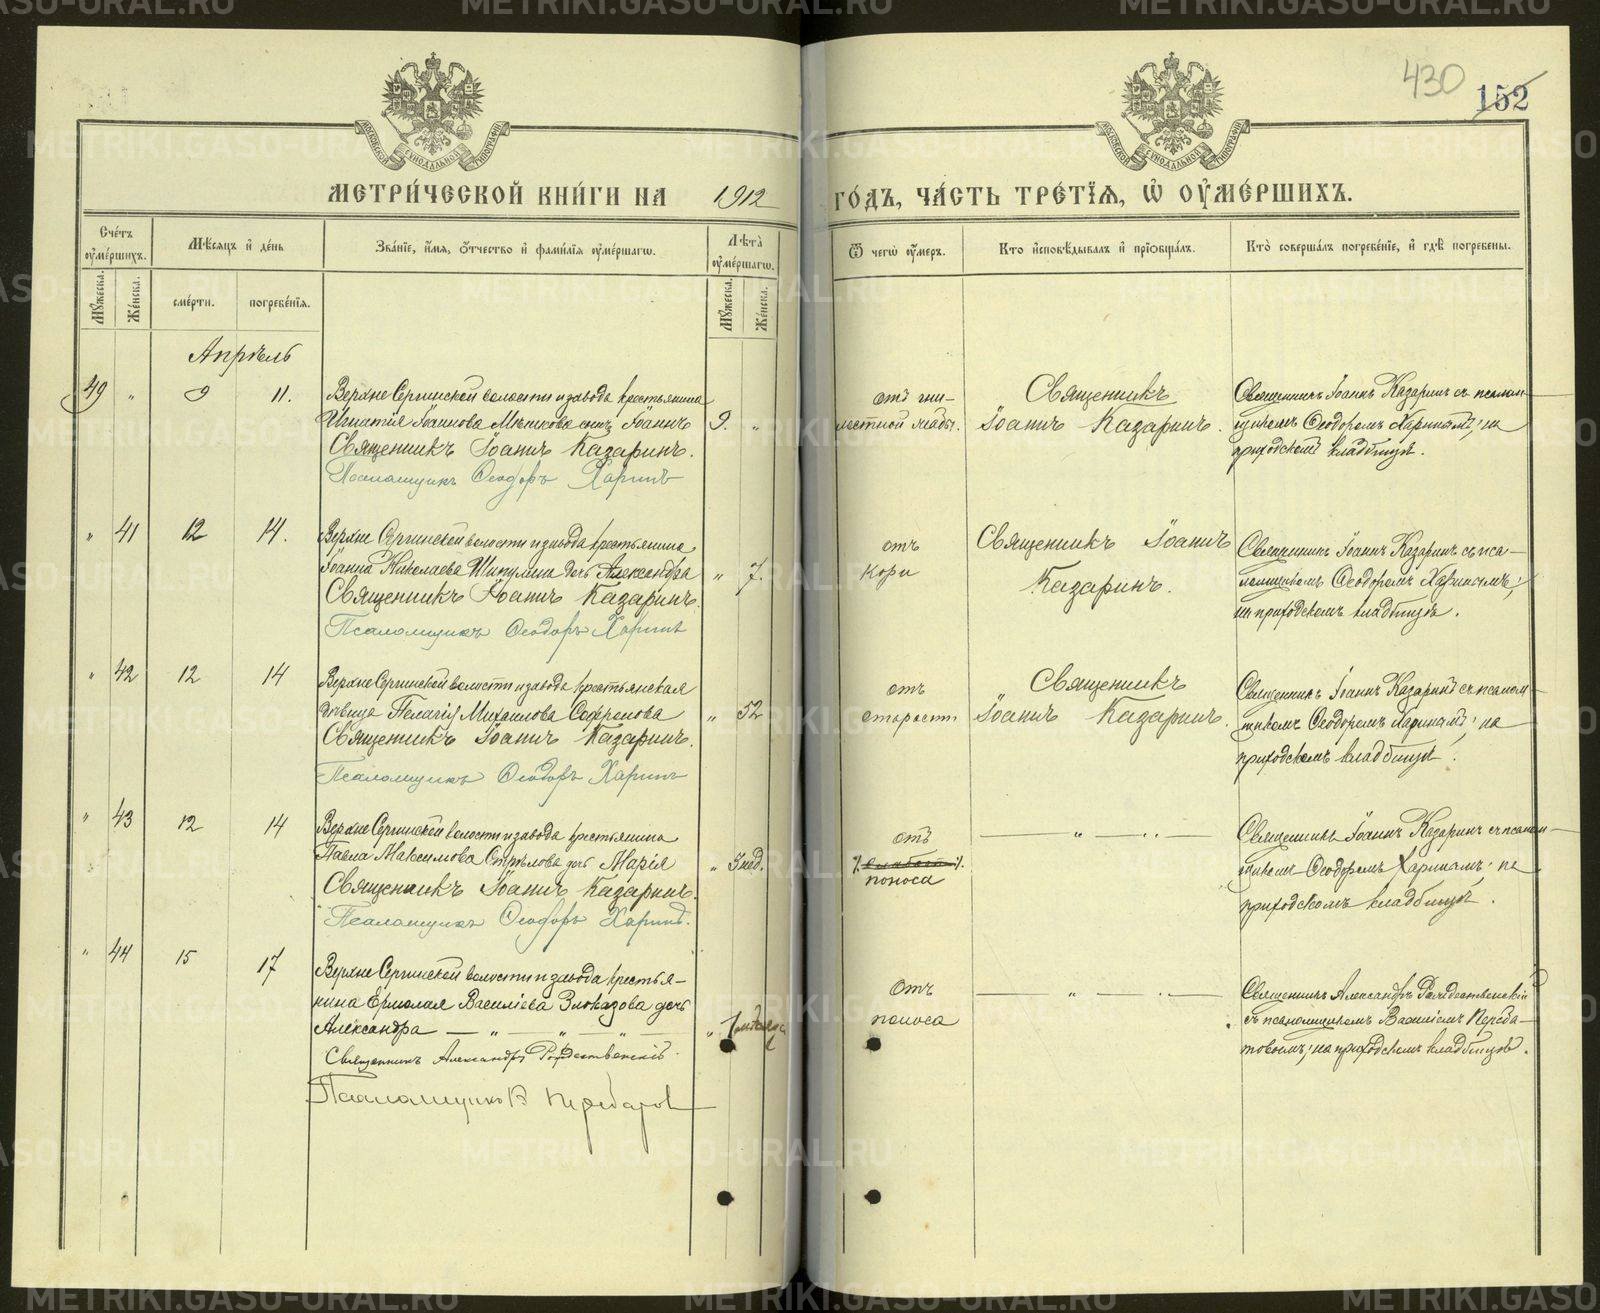 430
152
МОСКОВСКОЙ СѴНОДАЛЬНОЙ ТИПОГРАФІИ
МОСКОВСКОЙ СѴНОДАЛЬНОЙ ТИПОГРАФІИ
МЕТРИ́ЧЕСКОЙ КНИ́ГИ НА 1912 ГО́ДЪ, ЧА́СТЬ ТРЕ́ТІѦ, Ѽ ОУМЕ́РШИХЪ.
Сче́тъ оуме́ршихъ.
Мѣ́сяцъ и де́нь
Зва́ніе, и́мя, о́тчество и фами́лія оуме́ршагѡ.
Лѣта̀ оуме́ршагѡ.
Ѿ чегѡ̀ оу́меръ.
Кто̀ и҆сповѣ́дывалъ и҆ прїѻбща́лъ.
Кто̀ соверша́лъ погребе́нїе, и҆ гдѣ̀ погребены.
Мꙋ́жеска.
Же́нска.
сме́рти.
погребе́нїя.
Мꙋ́жеска.
Же́нска.
Апрѣль
49 " 9 11. Верхне Сергинской волости и завода крестьянина
Игнатія Іоаннова Мѣшкова сынъ Іоаннъ 9. "
Священникъ Іоаннъ Казаринъ.
Псаломщикъ Ѳеодоръ Харинъ
отъ гни-
лостной жабы.
Священникъ
Іоаннъ Казаринъ.
Священникъ Іоаннъ Казаринъ съ псалом-
щикомъ Ѳеодоромъ Харинымъ; на
приходскомъ кладбищѣ.
" 41 12 14. Верхне Сергинской волости и завода крестьянина
Іоанна Николаева Шипулина дочь Александра " 7.
Священникъ Іоаннъ Казаринъ.
Псаломщикъ Ѳеодоръ Харинъ
отъ
кори
Священникъ Іоаннъ
Казаринъ.
Священникъ Іоаннъ Казаринъ съ пса-
ломщикомъ Ѳеодоромъ Харинымъ;
на приходскомъ кладбищѣ.
" 42 12 14 Верхне Сергинской волости и завода крестьянская
дѣвица Пелагія Михаилова Софронова " 52
Священникъ Іоаннъ Казаринъ.
Псаломщикъ Ѳеодоръ Харинъ
отъ
старости
Священникъ
Іоаннъ Казаринъ.
Священникъ Іоаннъ Казаринъ съ псалом-
щикомъ Ѳеодоромъ Харинымъ; на
приходскомъ кладбищѣ.
" 43 12 14 Верхне Сергинской волости и завода крестьянина
Павла Максимова Стрѣлова дочь Марія " 3 нед.
Священникъ Іоаннъ Казаринъ.
Псаломщикъ Ѳеодоръ Харинъ.
отъ
поноса
— " — " —
Священникъ Іоаннъ Казаринъ съ псалом-
щикомъ Ѳеодоромъ Харинымъ; на
приходскомъ кладбищѣ.
" 44 15 17 Верхне Сергинской волости и завода крестья-
нина Ермолая Василіева Злоказова дочь
Александра — " — " — " " 1 мѣсяца
Священникъ Александръ Рождественскій.
Псаломщикъ В Перебатов
отъ
поноса
— " — " —
Священникъ Александръ Рождественскій
съ псаломщикомъ Василіемъ Переба-
товымъ; на приходскомъ кладбищѣ.
METRIKI.GASO-URAL.RU